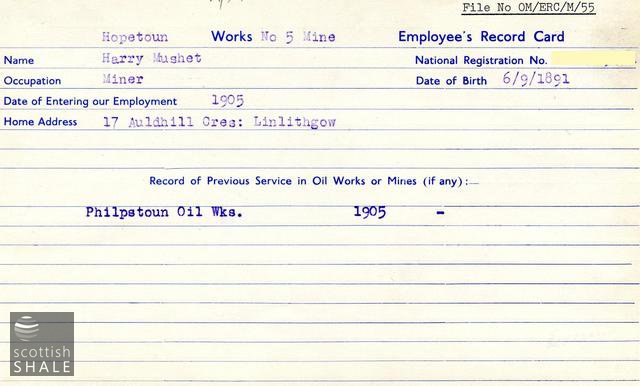 File No OM/ERC/M/55
Hopetoun Works No 5 Mine Employee's Record Card
Name Harry Mushet National Registration No.
Occupation Miner Date of Birth 6/9/1891
Date of Entering our Employment 1905
Home Address 17 Auldhill Cres: Linlithgow
Record of Previous Service in Oil Works or Mines (if any):—
Philpstoun Oil Wks. 1905 -
scottish
SHALE